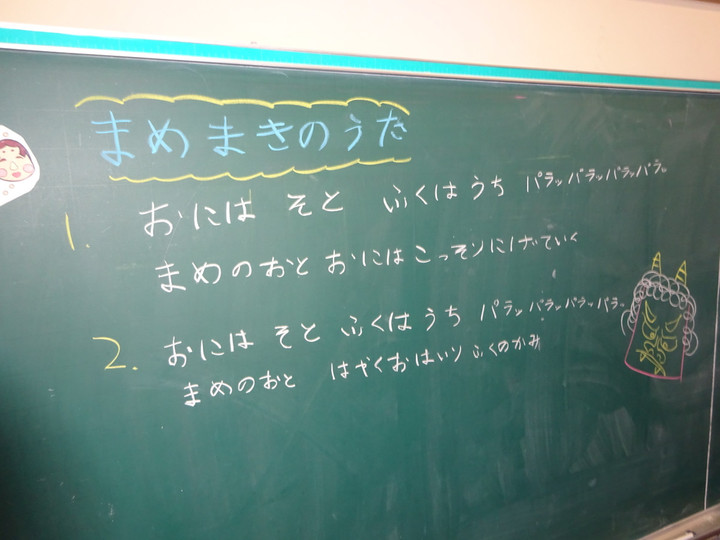 まめまきのうた
1. おには そと ふくは うち パラッパラッパラッパラ。
まめのおと おには こっそり にげていく
2. おには そと ふくは うち パラッパラッパラッパラ。
まめのおと はやくおはいり ふくのかみ